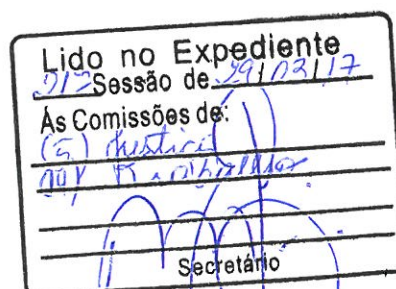 Lido no Expediente
Sessão de 29/03/17
Ás Comissões de:
(5) Justiça
Secretário